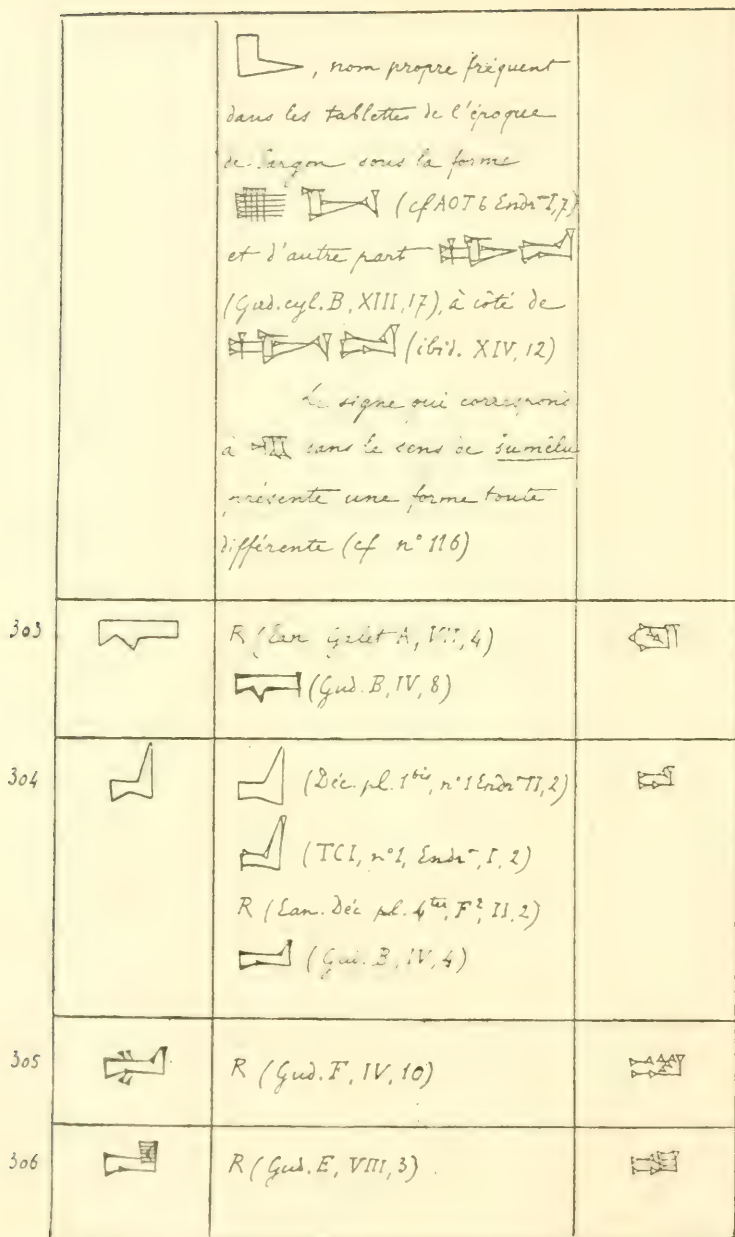 , nom propre fréquent
dans les tablettes de l'époque
de Sargon sous la forme
(cf AOT b Endr I, 7)
et d'autre part
(Gud. cyl. B, XIII, 17), à côté de
(ibid. XIV, 12)
Le signe qui correspond
à dans le sens de šumêlu
présente une forme toute
différente (cf n° 116)
303 R (Ean Galet A, VII, 4)
(Gud. B, IV, 8)
304 (Déc. pl. 1bis, n° 1 Endr II, 2)
(TCI, n° 1, Endr, I, 2)
R (Ean. Déc pl. 4ter, F², II, 2)
(Gud. B, IV, 4)
305 R (Gud. F, IV, 10)
306 R (Gud. E, VIII, 3)